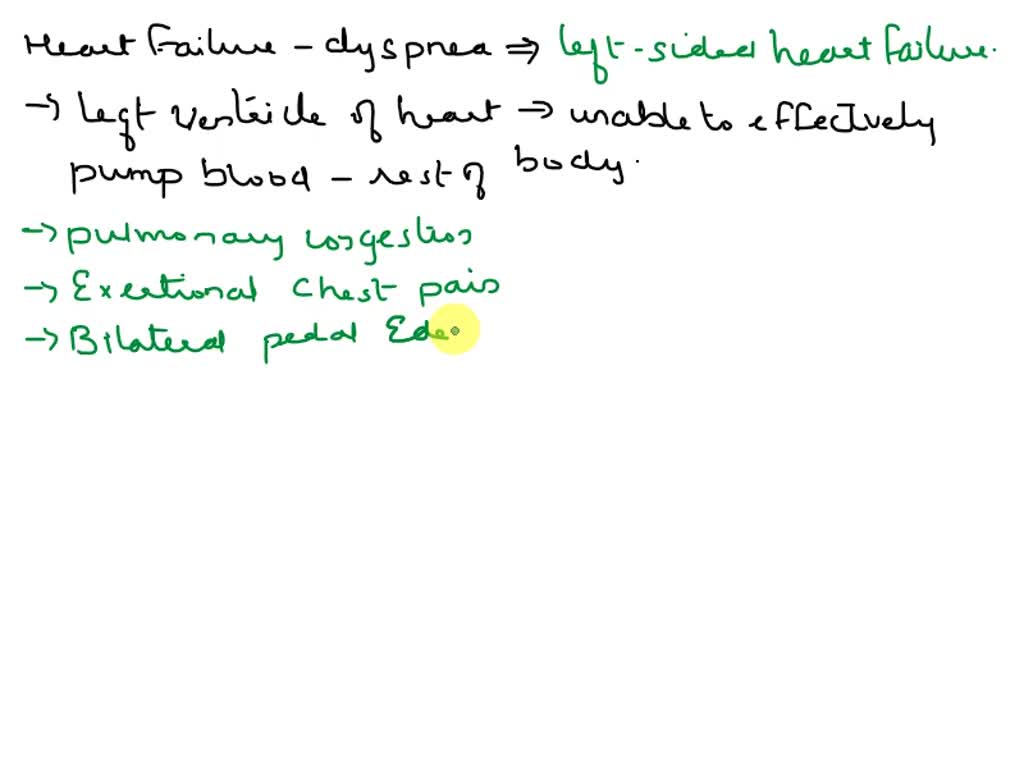 Heart Failure - dyspnea ⇒ left-sided heart failure.
→ Left Ventricle of heart → unable to effectively
pump blood - rest of body.
→ pulmonary congestion
→ Exertional chest pain
→ Bilateral pedal Ede